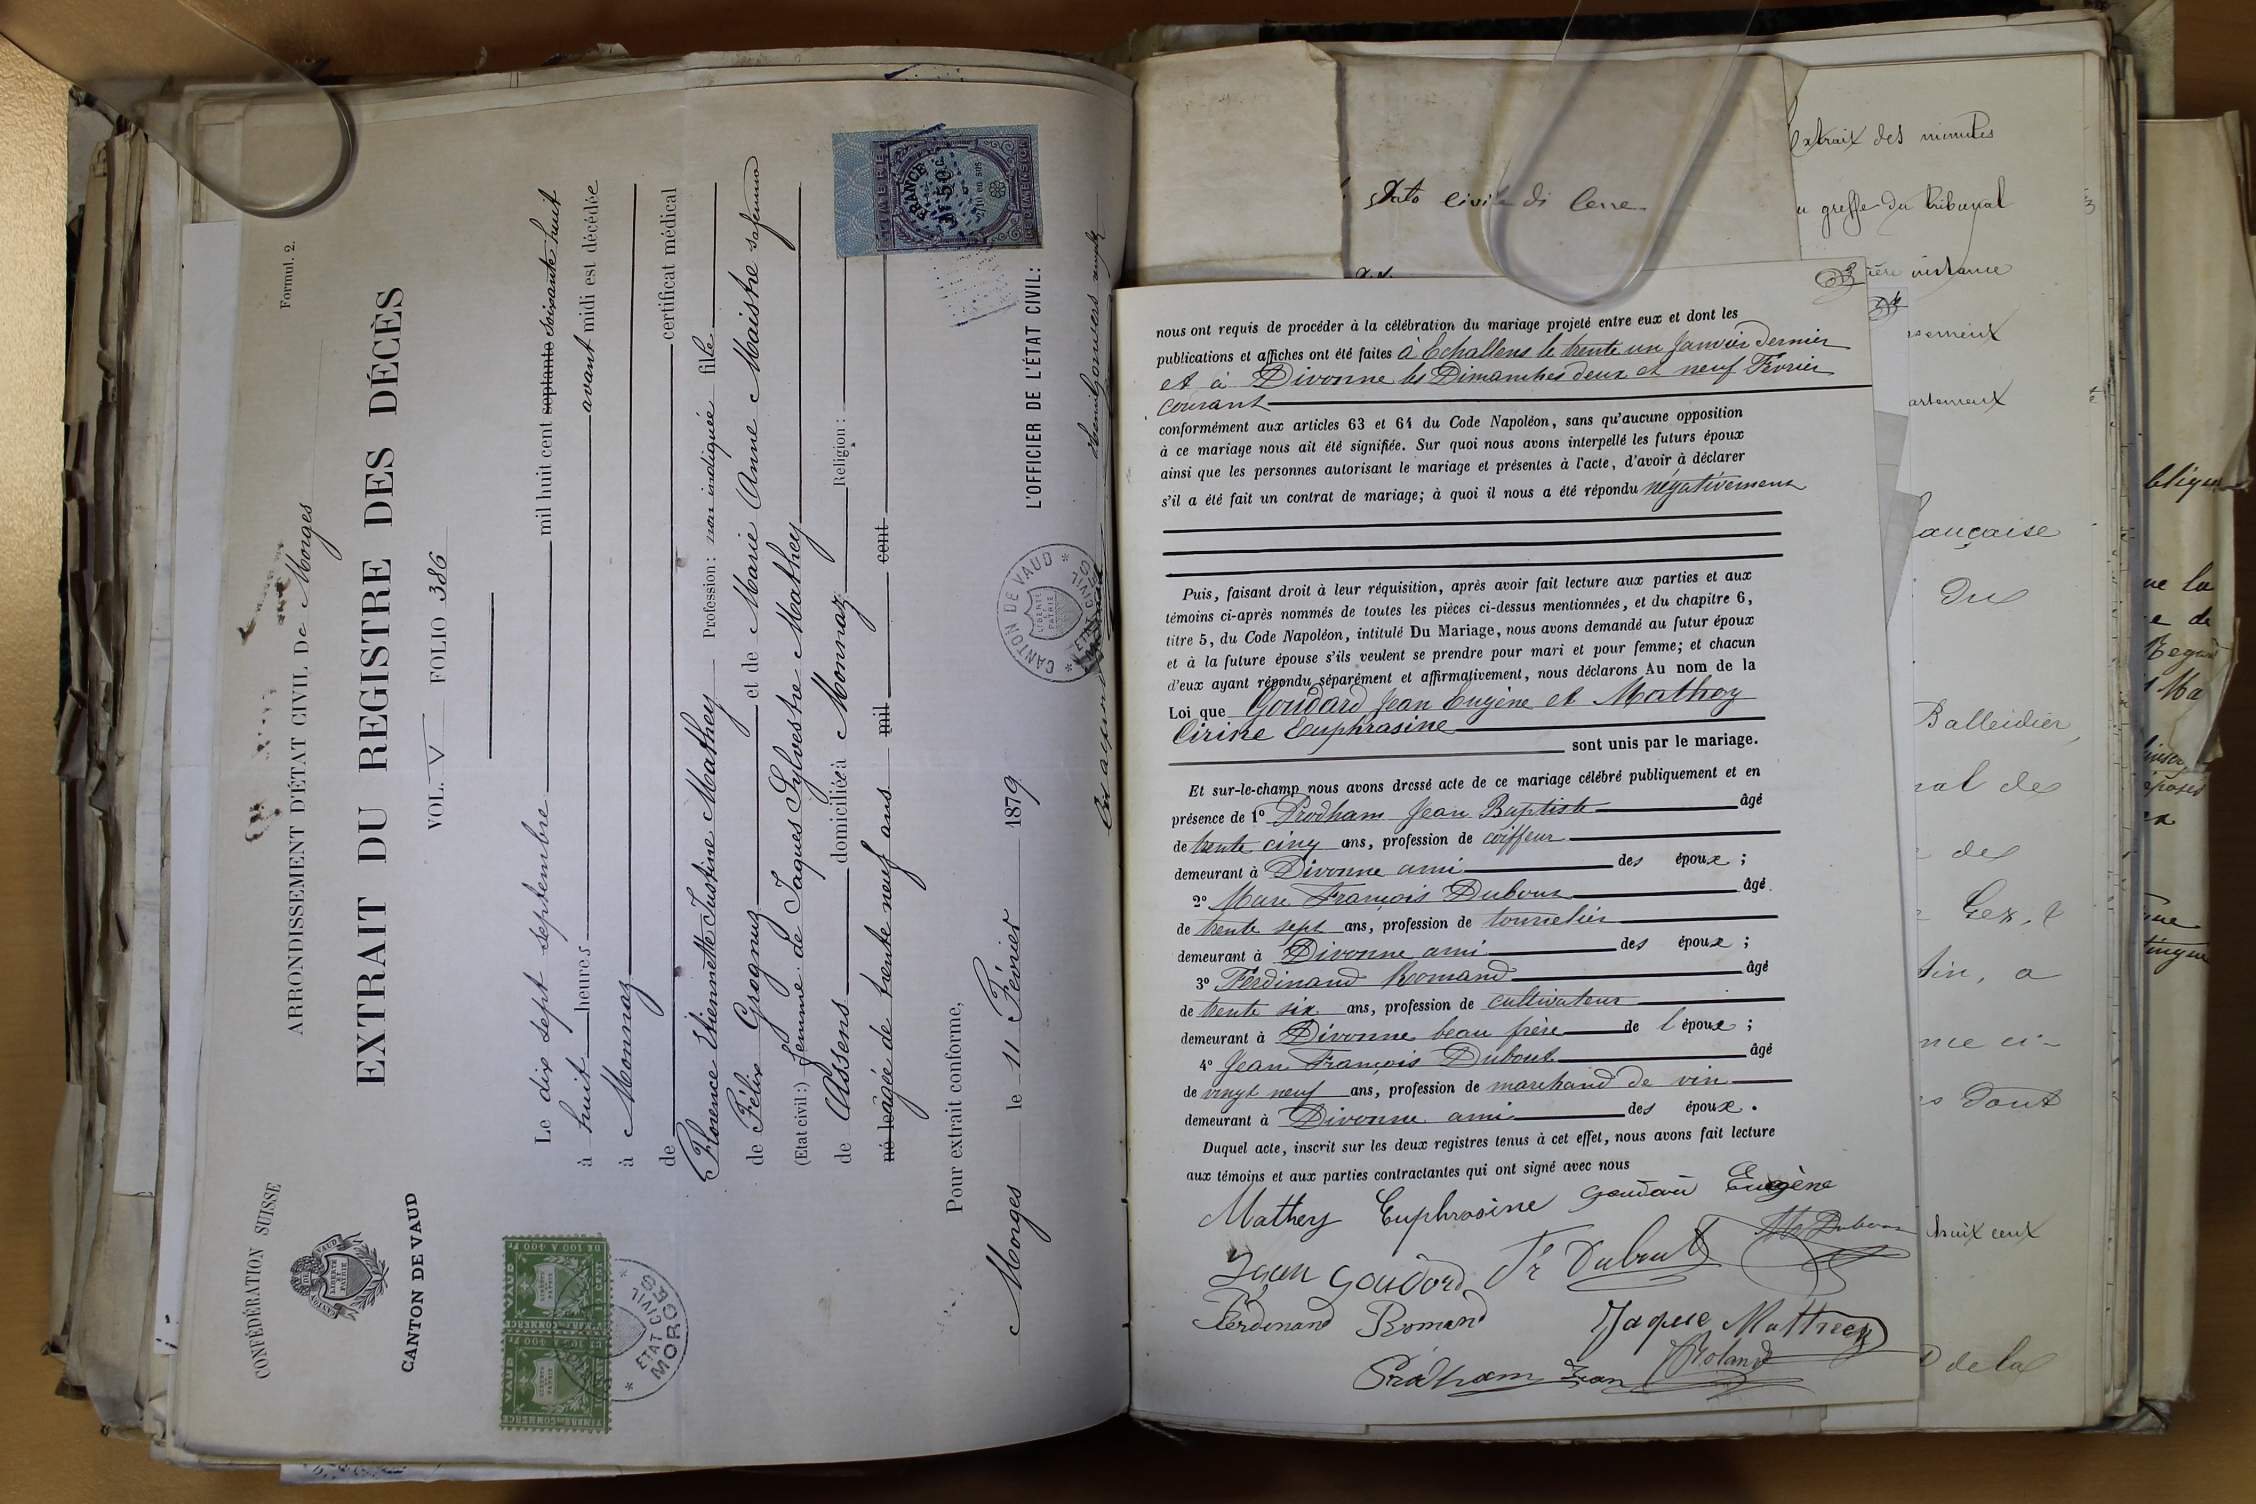 CONFÉDÉRATION SUISSE
CANTON DE VAUD
LIBERTÉ ET PATRIE
CANTON DE VAUD
Formul. 2.
ARRONDISSEMENT D'ÉTAT CIVIL De Morges
EXTRAIT DU REGISTRE DES DÉCÈS
VOL. V FOLIO 386
Le dix sept septembre mil huit cent septante soixante huit
à huit heures avant midi est décédée
à Monnaz
de certificat médical
Florence Etiennette Justine Mathey Profession: non indiquée fille
de Félix Grognuz et de Marie Anne Maistre sa femme
(Etat civil:) femme de Jaques Sylvestre Mathey
de Assens domiciliée à Monnaz Religion:
né le âgée de trente neuf ans mil cent
Pour extrait conforme,
Morges le 11 Février 1879
L'OFFICIER DE L'ÉTAT CIVIL:
CANTON DE VAUD
LIBERTÉ ET PATRIE
ETAT CIVIL
VAUD
DE 100 A 400 Fr
TIMBRE DE COMMERCE
ETAT CIVIL
MORGES
TIMBRE
FRANCE
1f 50c
2/10 en sus
DIMENSION
Stato civile di
extrait des minutes
u greffe du tribunal
ière instance
ançaise
Du
Balleidier,
nal de
de
Gex, &
tin, a
nce ci-
s dont
D de la
nous ont requis de procéder à la célébration du mariage projeté entre eux et dont les
publications et affiches ont été faites à Echallens le trente un Janvier dernier
et à Divonne les Dimanches deux et neuf Février
courant
conformément aux articles 63 et 64 du Code Napoléon, sans qu'aucune opposition
à ce mariage nous ait été signifiée. Sur quoi nous avons interpellé les futurs époux
ainsi que les personnes autorisant le mariage et présentes à l'acte, d'avoir à déclarer
s'il a été fait un contrat de mariage; à quoi il nous a été répondu négativement
Puis, faisant droit à leur réquisition, après avoir fait lecture aux parties et aux
témoins ci-après nommés de toutes les pièces ci-dessus mentionnées, et du chapitre 6,
titre 5, du Code Napoléon, intitulé Du Mariage, nous avons demandé au futur époux
et à la future épouse s'ils veulent se prendre pour mari et pour femme; et chacun
d'eux ayant répondu séparément et affirmativement, nous déclarons Au nom de la
Loi que Goudard Jean Eugène et Mathey
Cirine Euphrasine
sont unis par le mariage.
Et sur-le-champ nous avons dressé acte de ce mariage célébré publiquement et en
présence de 1º Prodham Jean Baptiste âgé
de trente cinq ans, profession de coiffeur
demeurant à Divonne ami des époux;
2º Marc François Dubout âgé
de trente sept ans, profession de tonnelier
demeurant à Divonne ami des époux;
3º Ferdinand Romand âgé
de trente six ans, profession de cultivateur
demeurant à Divonne beau frère de l'époux;
4º Jean François Dubout âgé
de vingt neuf ans, profession de marchand de vin
demeurant à Divonne ami des époux.
Duquel acte, inscrit sur les deux registres tenus à cet effet, nous avons fait lecture
aux témoins et aux parties contractantes qui ont signé avec nous
Mathey Euphrosine Goudard Eugène
Jean Goudard Fs Dubout Mc Dubout
Ferdinand Romand Jaque Mathey
Prodham Jean Roland